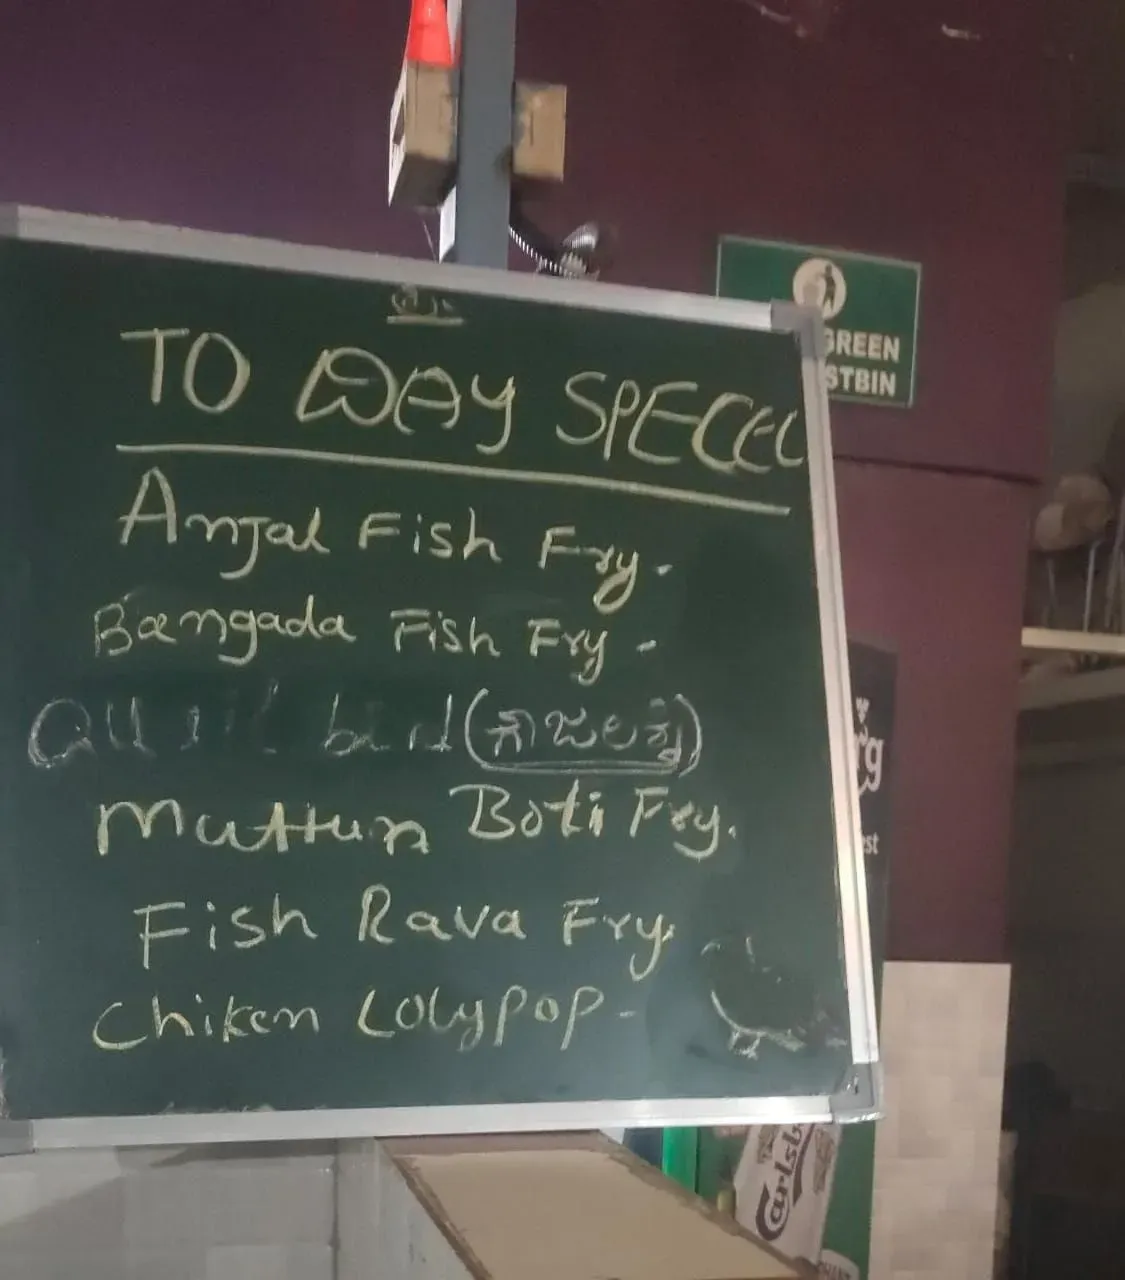 ಶ್ರೀ
TO DAY SPECEL
Anjal Fish Fry.
Bangada Fish Fry -
bird (ಗೌಜಲಕ್ಕಿ)
Muttun Boti Fry.
Fish Rava Fry
Chiken Lolypop -
GREEN
STBIN
rg
est
Carlsb